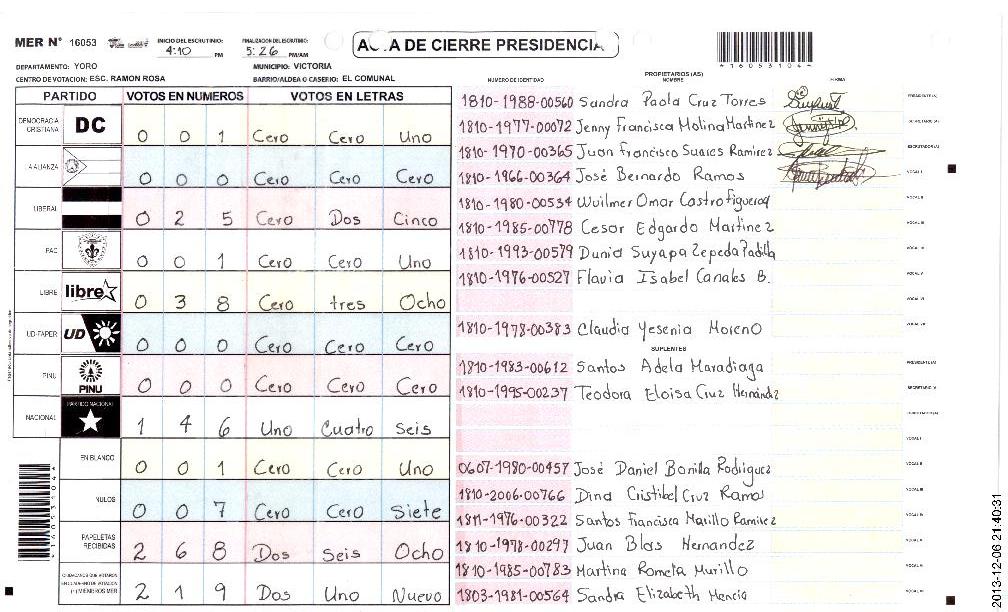 MER Nº 16053
INICIO DEL ESCRUTINIO: 4:10 PM
FINALIZACION DEL ESCRUTINIO: 5:26 PM/AM
ACTA DE CIERRE PRESIDENCIAL
4160531044
DEPARTAMENTO: YORO
MUNICIPIO: VICTORIA
CENTRO DE VOTACION: ESC. RAMON ROSA
BARRIO/ALDEA O CASERIO: EL COMUNAL
PARTIDO VOTOS EN NUMEROS VOTOS EN LETRAS
DEMOCRACIA CRISTIANA DC 0 0 1 Cero Cero Uno
LA ALIANZA 0 0 0 Cero Cero Cero
LIBERAL 0 2 5 Cero Dos Cinco
PAC 0 0 1 Cero Cero Uno
LIBRE libre 0 3 8 Cero tres Ocho
UD-FAPER UD 0 0 0 Cero Cero Cero
PINU PINU 0 0 0 Cero Cero Cero
NACIONAL PARTIDO NACIONAL 1 4 6 Uno Cuatro Seis
EN BLANCO 0 0 1 Cero Cero Uno
NULOS 0 0 7 Cero Cero Siete
PAPELETAS RECIBIDAS 2 6 8 Dos Seis Ocho
CIUDADANOS QUE VOTARON EN CUADERNO DE VOTACION (+) MIEMBROS MER 2 1 9 Dos Uno Nuevo
4160531044
NUMERO DE IDENTIDAD
PROPIETARIOS (AS)
NOMBRE
FIRMA
1810-1988-00560 Sandra Paola Cruz Torres PRESIDENTE(A)
1810-1977-00072 Jenny Francisca Molina Martinez SECRETARIO(A)
1810-1970-00365 Juan Francisco Suares Ramirez ESCRUTADOR(A)
1810-1966-00364 José Bernardo Ramos VOCAL I
1810-1980-00534 Wuilmer Omar Castro Figueroa VOCAL II
1810-1985-00778 Cesor Edgardo Martinez VOCAL III
1810-1993-00579 Dunia Suyapa Zepeda Padilla VOCAL IV
1810-1976-00527 Flavia Isabel Canales B. VOCAL V
VOCAL VI
1810-1978-00383 Claudia Yesenia Moreno VOCAL VII
SUPLENTES
1810-1983-00612 Santos Adela Maradiaga PRESIDENTE(A)
1810-1995-00237 Teodora Eloisa Cruz Hernández SECRETARIO(A)
ESCRUTADOR(A)
VOCAL I
0607-1980-00457 José Daniel Bonilla Rodriguez VOCAL II
1810-2006-00766 Dina Cristibel Cruz Ramos VOCAL III
1811-1976-00322 Santos Francisca Murillo Ramirez VOCAL IV
1810-1978-00297 Juan Blas Hernandez VOCAL V
1810-1985-00783 Martina Rometa Murillo VOCAL VI
1803-1981-00564 Sandra Elizabeth Mencia VOCAL VII
2013-12-06 21:40:31